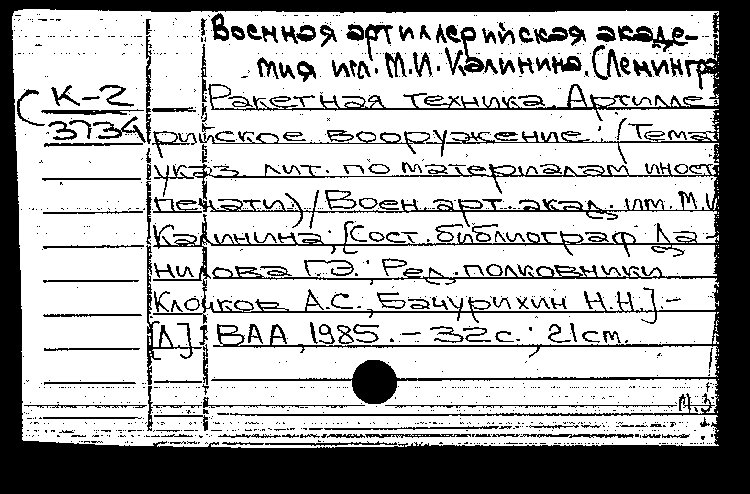 Военная артиллерийская акаде-
мия им. М.И. Калинина. (Ленингра
К-2
3734
Ракетная техника. Артилле-
рийское вооружение: (Тема
указ. лит. по материалам иност
печати) / Воен. арт. акад. им. М.И
Калинина; [Сост. библиограф Да-
нилова Г.Э.; Ред. полковники
Клочков А.С., Бачурихин Н.Н.]. -
[Л.]: ВАА, 1985. - 32 с.; 21 см.
М.З